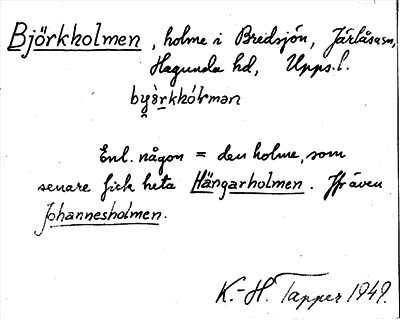 Björkholmen, holme i Bredsjön, Järlåsasn,
Hagunda hd, Upps.l.
Enl. någon = den holme, som
senare fick heta Hängarholmen. Jfr även
Johannesholmen.
K.-H. Tapper 1949.